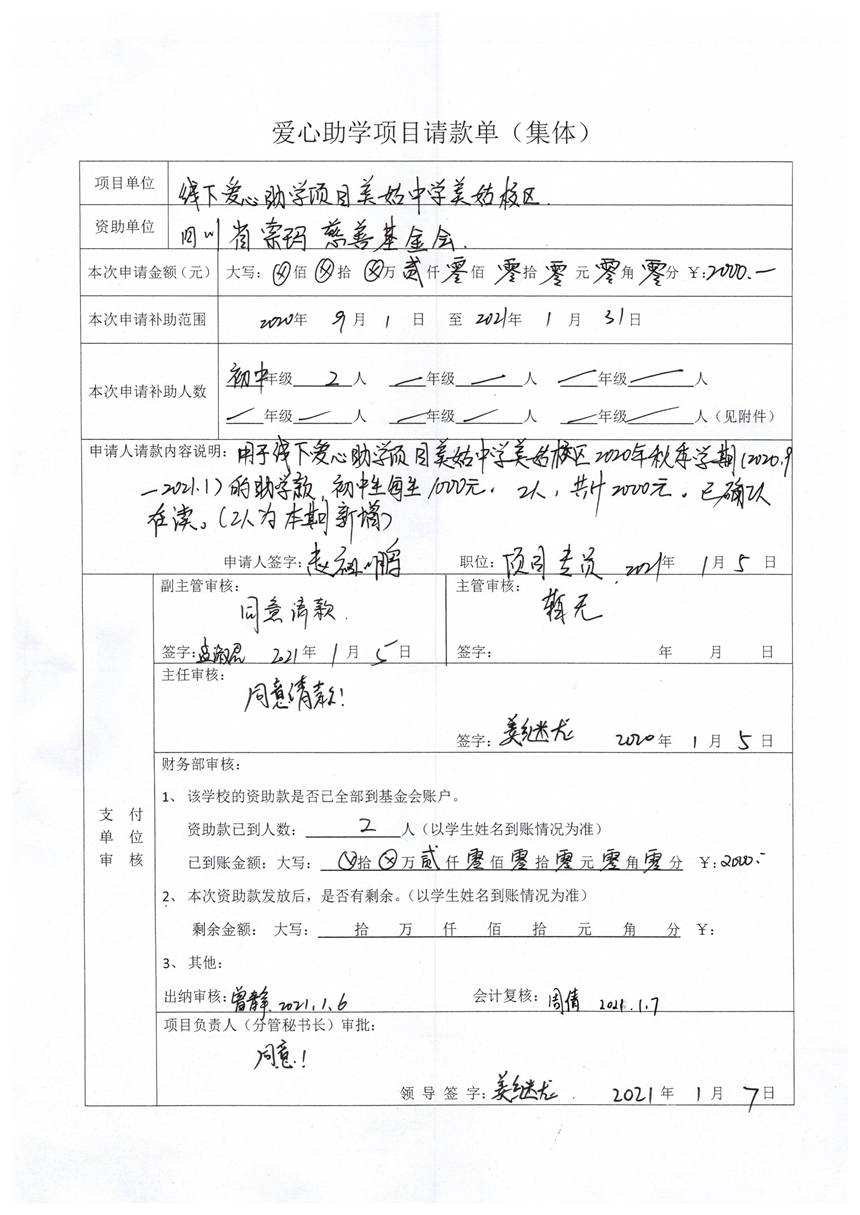 爱心助学项目请款单（集体）
项目单位 线下爱心助学项目美姑中学美姑校区.
资助单位 四川省索玛慈善基金会.
本次申请金额（元） 大写：ⓧ佰ⓧ拾ⓧ万贰仟零佰零拾零元零角零分 ￥:2000.一
本次申请补助范围 2020年 9月 1日 至 2021年 1月 31日
本次申请补助人数 初中年级 2 人 一年级 一 人 一年级 一 人
一年级 一 人 一年级 一 人 一年级 一 人（见附件）
申请人请款内容说明：用于线下爱心助学项目美姑中学美姑校区2020年秋季学期（2020.9
—2021.1）的助学款，初中生每生1000元. 2人，共计2000元。已确认
在读。（2人为本期新增）
申请人签字： 职位：项目专员. 2021年 1月 5日
支付单位审核
副主管审核： 主管审核：
同意请款. 暂无
签字： 2021年 1月 5日 签字： 年 月 日
主任审核：
同意请款！
签字：姜继龙 2020年 1月 5日
财务部审核：
1、 该学校的资助款是否已全部到基金会账户。
资助款已到人数： 2 人（以学生姓名到账情况为准）
已到账金额：大写：ⓧ拾ⓧ万贰仟零佰零拾零元零角零分 ￥:2000.-
2、 本次资助款发放后，是否有剩余。（以学生姓名到账情况为准）
剩余金额： 大写： 拾 万 仟 佰 拾 元 角 分 ￥:
3、 其他：
出纳审核：曾静 2021.1.6 会计复核：周倩 2021.1.7
项目负责人（分管秘书长）审批：
同意！
领导签字：姜继龙. 2021年 1月 7日